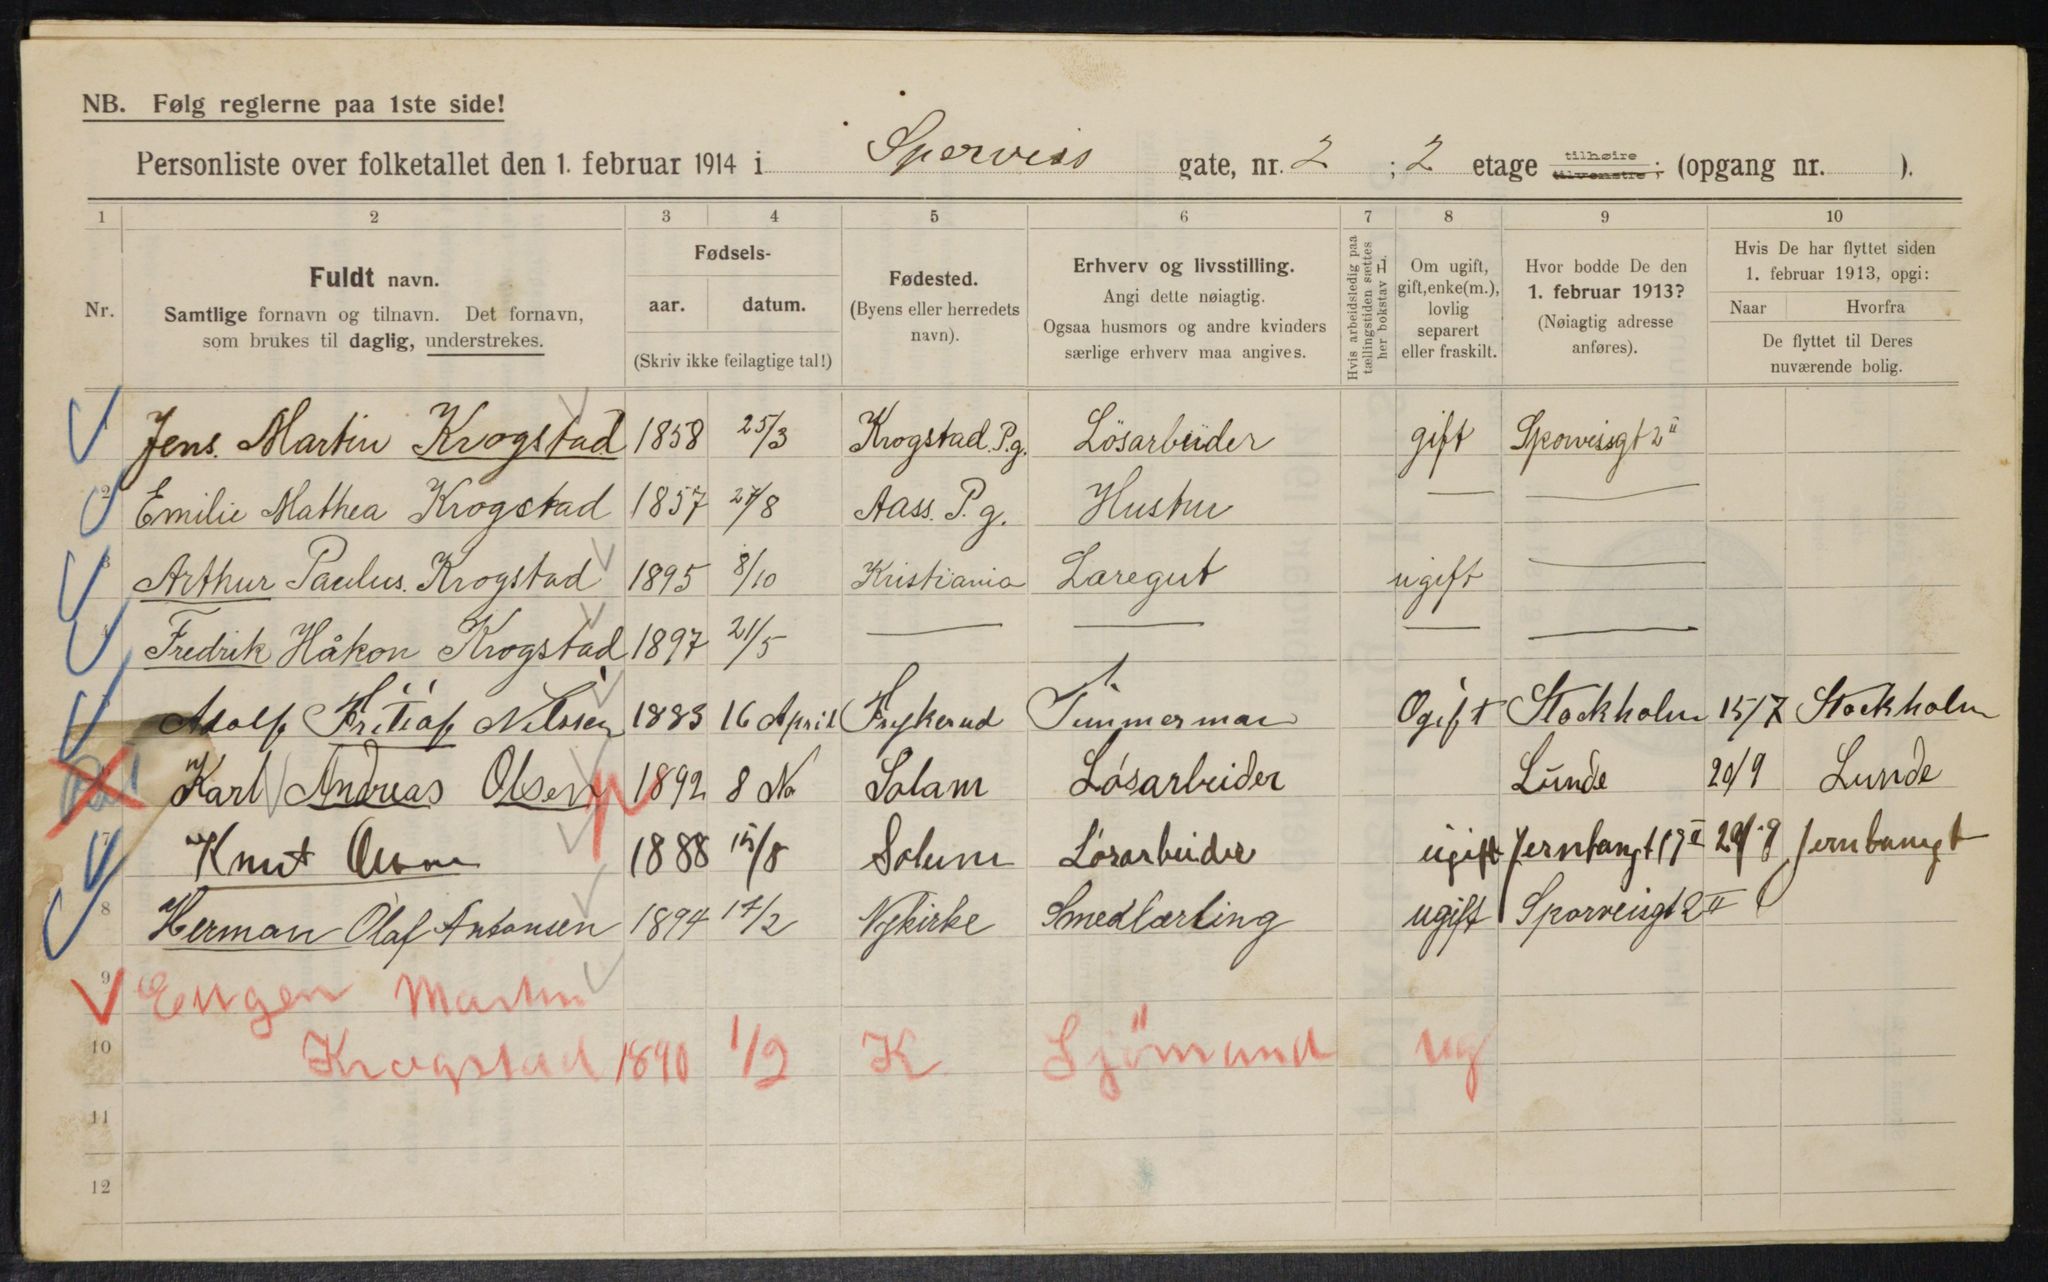 NB. Følg reglerne paa 1ste side!
Personliste over folketallet den 1. februar 1914 i Sperveis gate, nr. 2 ; 2 etage tilhøire tilvenstre; (opgang nr. ).
1 2 3 4 5 6 7 8 9 10
Nr.
Fuldt navn.
Samtlige fornavn og tilnavn. Det fornavn,
som brukes til daglig, understrekes.
Fødsels-
aar. datum.
(Skriv ikke feilagtige tal!)
Fødested.
(Byens eller herredets
navn).
Erhverv og livsstilling.
Angi dette nøiagtig.
Ogsaa husmors og andre kvinders
særlige erhverv maa angives.
Hvis arbeidsledig paa
tællingstiden sættes
her bokstav L.
Om ugift,
gift, enke(m.),
lovlig
separert
eller fraskilt.
Hvor bodde De den
1. februar 1913?
(Nøiagtig adresse
anføres).
Hvis De har flyttet siden
1. februar 1913, opgi:
Naar Hvorfra
De flyttet til Deres
nuværende bolig.
Jens. Martin Krogstad 1858 25/3 Krogstad. P.g. Lösarbeider gift Sporveisgt 2 II
2 Emilie Mathea Krogstad 1857 27/8 Aass. P. g. Hustru — —
3 Arthur Paulus. Krogstad 1895 8/10 Kristiania Læregut ugift —
4 Fredrik Håkon Krogstad 1897 21/5 — — — —
Adolf Fritiof Nilssen 1883 16 April Frykerud Timmerman Ogift Stockholm 15/7 Stockholm
Karl Andreas Olsen 1892 8 No Solam Lósarbeider Lunde 20/9 Lunde
7 Knut 1888 15/8 Solum Lösarbeider ugift Jernbangt 17 II 29/9 Jernbangt
8 Herman Olaf Antonsen 1894 17/2 Nykirke Smedlærling ugift Sporveisgt 2 II
9 Eugen Martin
10 Krogstad 1890 1/2 K Sjömand ug
11
12